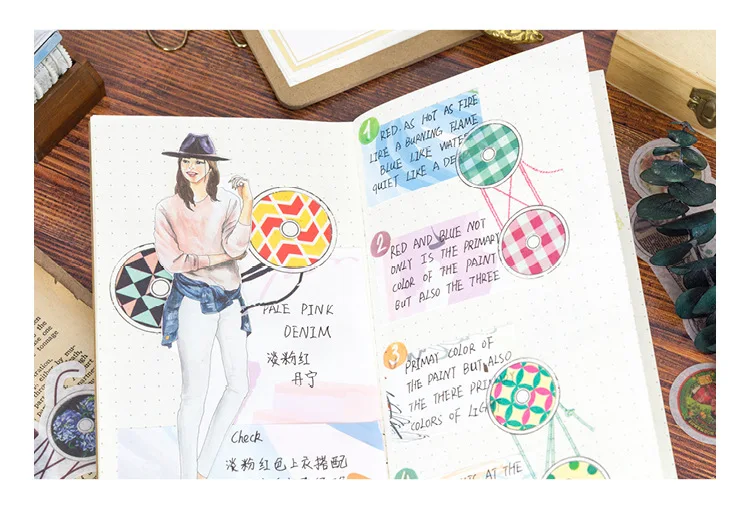 PALE PINK
DENIM
淡粉红
丹宁
Check
淡粉红色上衣搭配
1
RED. AS HOT AS FIRE
LIKE A BURNING FLAME
BLUE LIKE WATE
QUIET LIKE A DE
2
RED AND BLUE NOT
ONLY IS THE PRIMARY
COLOR OF THE PAINT
BUT ALSO THE THREE
3
PRIMAY COLOR OF
THE PAINT BUT ALSO
THE THERE PRI
COLORS OF LIG
4
AT THE